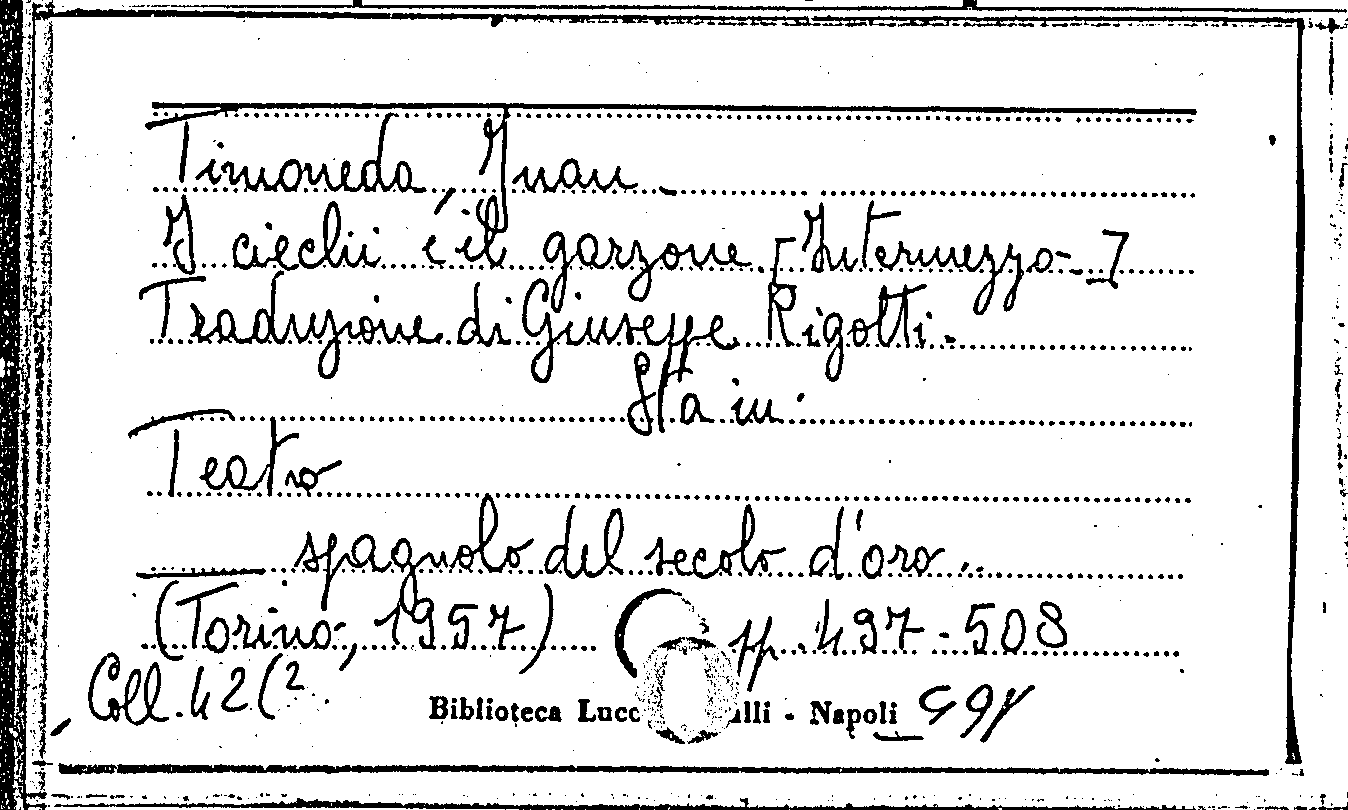 Timoneda, Juan.
I ciechi e il garzone. [Intermezzo.]
Traduzione di Giuseppe Rigotti.
Sta in:
Teatro
spagnolo del secolo d'oro..
(Torino, 1957) pp. 497-508
Coll. 42 (2
Biblioteca Lucc alli - Napoli